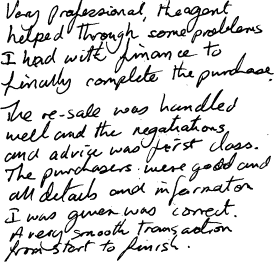 Very Professional, the agent
helped through some problems
I had with finance to
finally complete the purchase.
The re-sale was handled
well and the negotiations
and advice was first class.
The purchasers were good and
all details and information
I was given was correct.
A very smooth transaction
from start to finish.